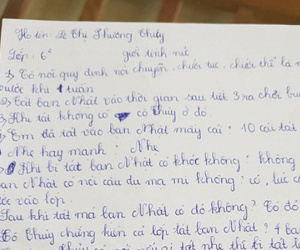 Họ tên: Lê Thị Phương Thúy
Lớp: 6² giới tính nữ
1) Cô nói quy định nói chuyện, chửi tục, chửi thề là
trước khi 1 tuần
2) Tát bạn Nhát vào thời gian sau tiết 3 ra chơi
3) Khi tát không có cô Thủy ở đó.
4) Em đã tát vào bạn Nhát mấy cái: 10 cái tát
5) Nhẹ hay mạnh: Nhẹ
6) Khi bị tát bạn Nhát có khóc không: không
bạn Nhát có nói câu dụ ma mi không: có, lúc
vào lớp.
Sau khi tát mà bạn Nhát có đỏ không? Có đỏ
Cô Thủy chứng kiến cả lớp tát bạn Nhát? 4
Thủy có nói gì tát nhẹ thì